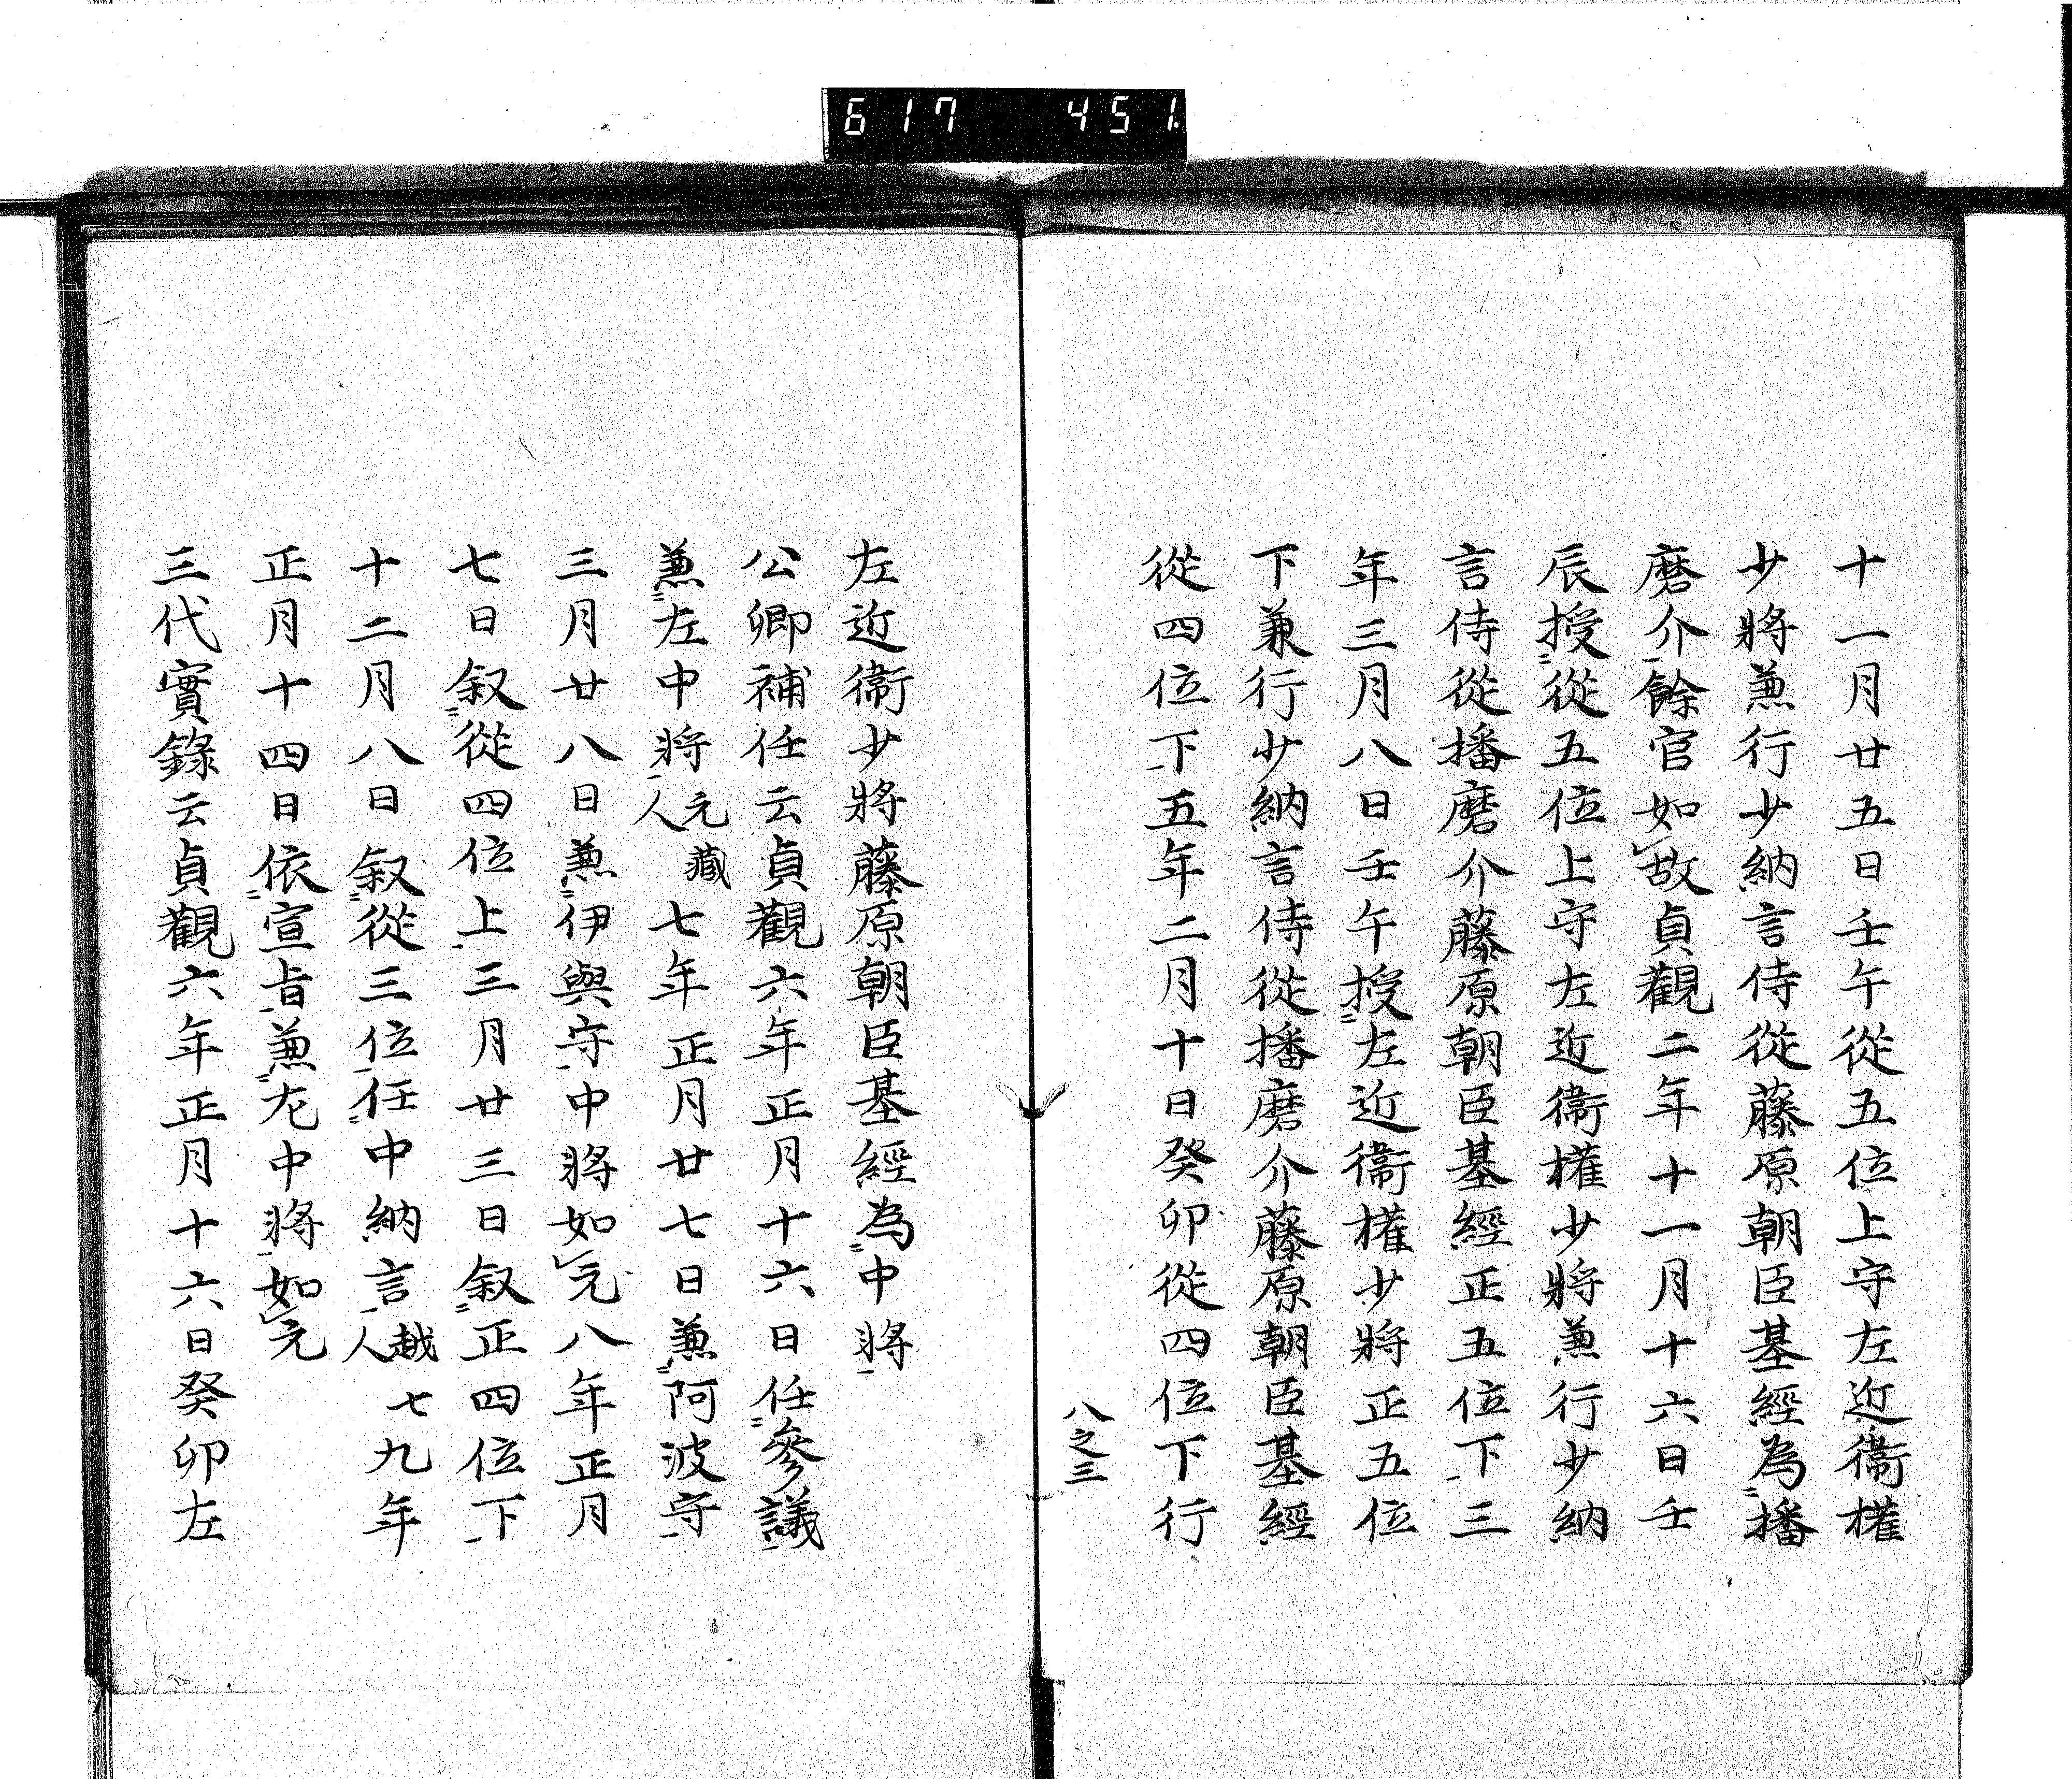 617 451
十一月廿五日壬午從五位上守左近衞權
少將兼行少納言侍從藤原朝臣基經為播
磨介餘官如故貞觀二年十一月十六日壬
辰授從五位上守左近衞權少將兼行少納
言侍從播磨介藤原朝臣基經正五位下三
年三月八日壬午授左近衞權少將正五位
下兼行少納言侍從播磨介藤原朝臣基經
從四位下五年二月十日癸卯從四位下行
八之三
左近衞少將藤原朝臣基經為中將
公卿補任云貞觀六年正月十六日任參議
兼左中將元藏人七年正月廿七日兼阿波守
三月廿八日兼伊與守中將如元八年正月
七日叙從四位上三月廿三日叙正四位下
十二月八日叙從三位任中納言越七人九年
正月十四日依宣旨兼左中將如元
三代實錄云貞觀六年正月十六日癸卯左